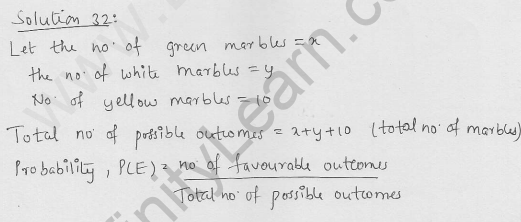 Solution 32:
Let the no. of green marbles = x
the no. of white marbles = y
No. of yellow marbles = 10
Total no. of possible outcomes = x+y+10 (total no. of marbles)
Probability, P(E) = no. of favourable outcomes
Total no. of possible outcomes